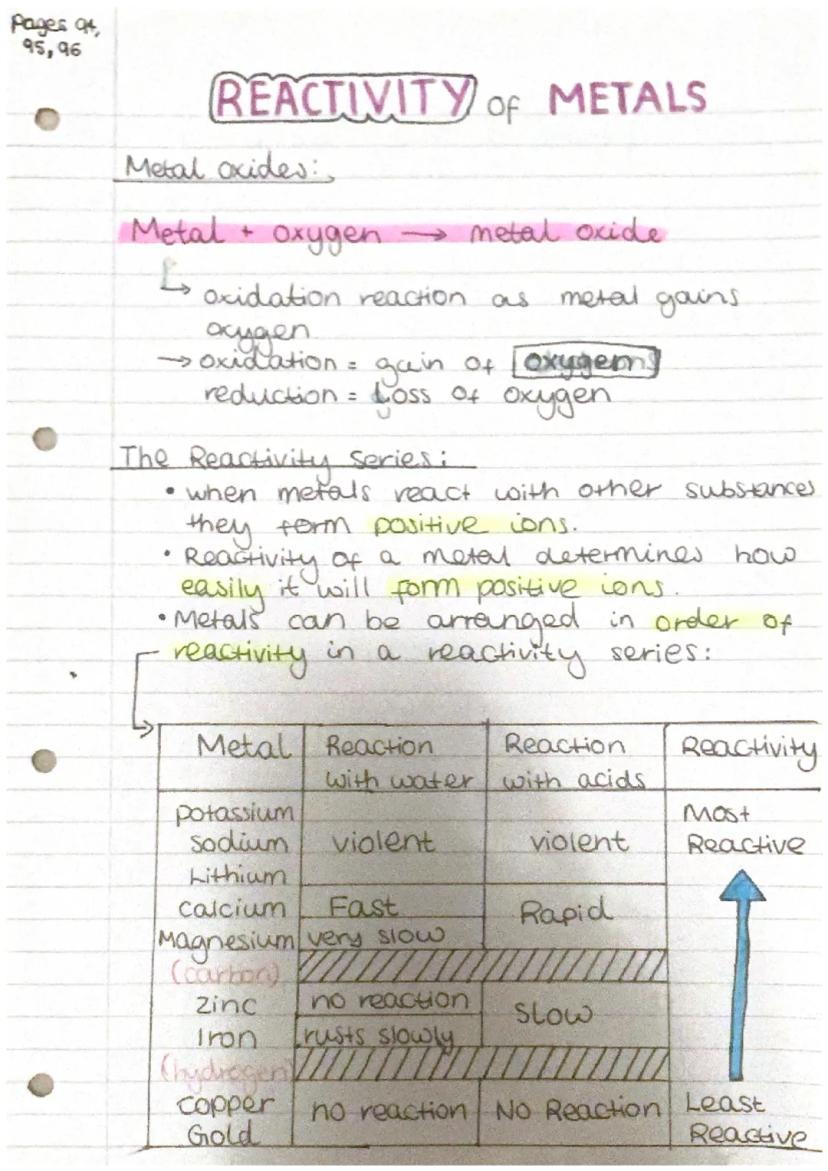 Pages 94,
95, 96
REACTIVITY of METALS
Metal oxides:
Metal + oxygen → metal oxide
↳ oxidation reaction as metal gains
oxygen
→ oxidation = gain of oxygen
reduction = Loss of oxygen
The Reactivity Series:
• when metals react with other substances
they form positive ions.
• Reactivity of a metal determines how
easily it will form positive ions.
• Metals can be arranged in order of
reactivity in a reactivity series:
Metal | Reaction with water | Reaction with acids | Reactivity
Potassium
Sodium | violent | violent | Most Reactive
Lithium
Calcium | Fast | Rapid
Magnesium | very slow
(carbon)
Zinc | no reaction | SLOW
Iron | rusts slowly
(hydrogen)
Copper | no reaction | No Reaction | Least Reactive
Gold